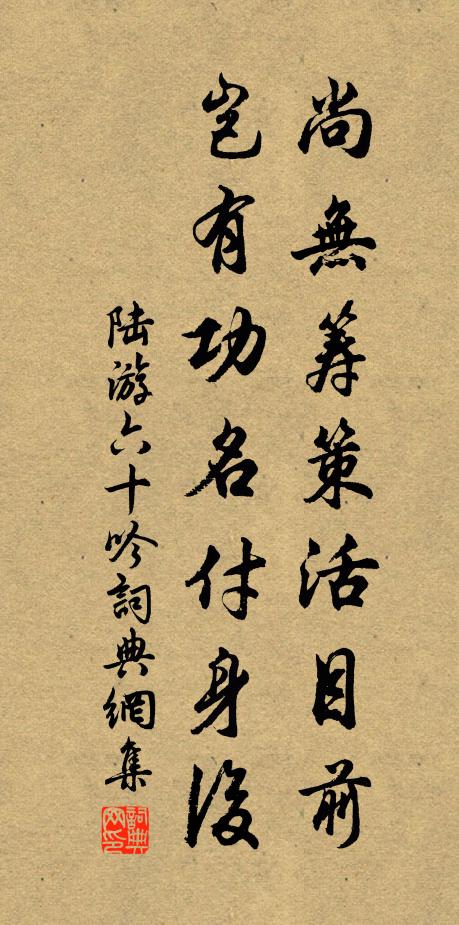 尚無筹策活目前
岂有功名付身後
陆游六十吟詞典網集
詞典网印